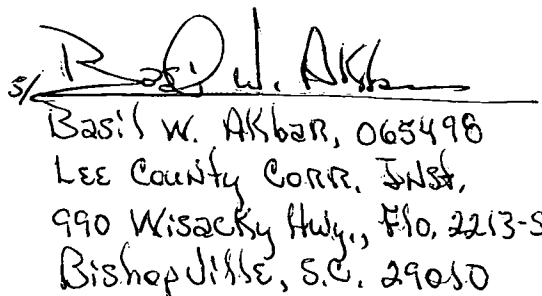 s/ Basil W. Akbar
Basil W. Akbar, 065498
Lee County Corr. Inst,
990 Wisacky Hwy., Flo. 2213-S
Bishopville, S.C. 29010